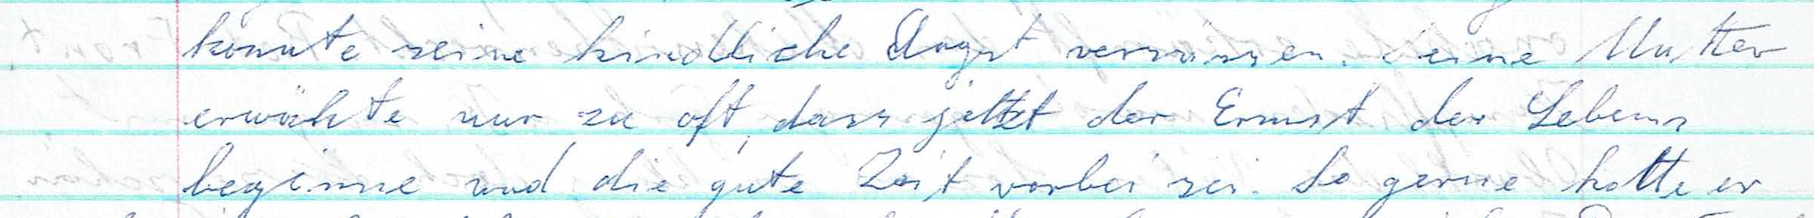 konnte seine kindliche Angst vermissen. Seine Mutter
erwähte nur zu oft, dass jetzt der Ernst des Lebens
beginne und die gute Zeit vorbei sei. So gerne hatte er